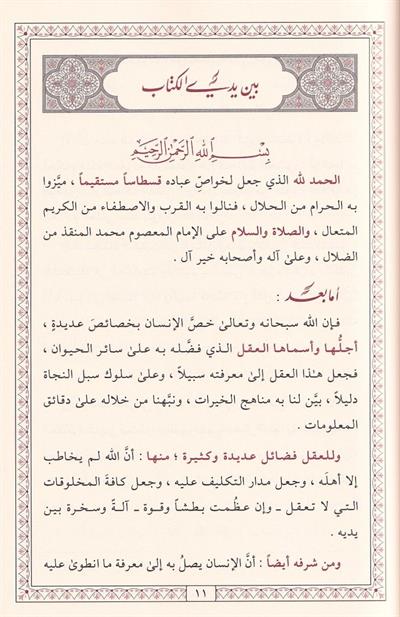 بين يدي الكتاب
بِسْمِ اللهِ الرَّحْمٰنِ الرَّحِيْمِ
الحمد لله الذي جعل لخواصِّ عباده قسطاساً مستقيماً ، ميَّزوا
به الحرام من الحلال ، فنالوا به القرب والاصطفاء من الكريم
المتعال ، والصلاة والسلام على الإمام المعصوم محمد المنقذ من
الضلال ، وعلىٰ آله وأصحابه خير آل .
أما بعد :
فإن الله سبحانه وتعالىٰ خصَّ الإنسان بخصائصَ عديدةٍ ،
أجلُّها وأسماها العقل الذي فضَّله به علىٰ سائر الحيوان ،
فجعل هـٰذا العقل إلىٰ معرفته سبيلاً ، وعلىٰ سلوك سبل النجاة
دليلاً ، بيَّن لنا به مناهج الخيرات ، ونبَّهنا من خلاله علىٰ دقائق
المعلومات .
وللعقل فضائل عديدة وكثيرة ؛ منها : أنَّ الله لم يخاطب
إلا أهلَه ، وجعل مدار التكليف عليه ، وجعل كافةَ المخلوقات
التي لا تعقل ـ وإن عظُمت بطشاً وقوة ـ آلةً وسخرة بين
يديه .
ومن شرفه أيضاً : أنَّ الإنسان يصلُ به إلىٰ معرفة ما انطوىٰ عليه
١١